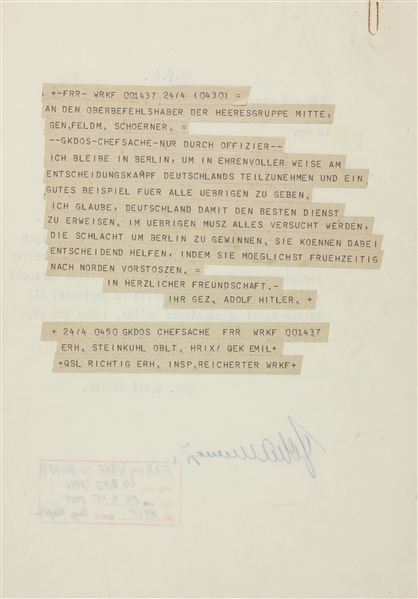 +-FRR- WRKF 001437 24/4 (0430) =
AN DEN OBERBEFEHLSHABER DER HEERESGRUPPE MITTE,
GEN,FELDM, SCHOERNER, =
--GKDOS-CHEFSACHE-NUR DURCH OFFIZIER--
ICH BLEIBE IN BERLIN, UM IN EHRENVOLLER WEISE AM
ENTSCHEIDUNGSKAMPF DEUTSCHLANDS TEILZUNEHMEN UND EIN
GUTES BEISPIEL FUER ALLE UEBRIGEN ZU GEBEN,
ICH GLAUBE, DEUTSCHLAND DAMIT DEN BESTEN DIENST
ZU ERWEISEN, IM UEBRIGEN MUSZ ALLES VERSUCHT WERDEN,
DIE SCHLACHT UM BERLIN ZU GEWINNEN, SIE KOENNEN DABEI
ENTSCHEIDEND HELFEN, INDEM SIE MOEGLICHST FRUEHZEITIG
NACH NORDEN VORSTOSZEN, =
IN HERZLICHER FREUNDSCHAFT,-
IHR GEZ, ADOLF HITLER, +
+ 24/4 0450 GKDOS CHEFSACHE FRR WRKF 001437
ERH, STEINKUHL OBLT, HRIX/ QEK EMIL+
+QSL RICHTIG ERH, INSP,REICHERTER WRKF+